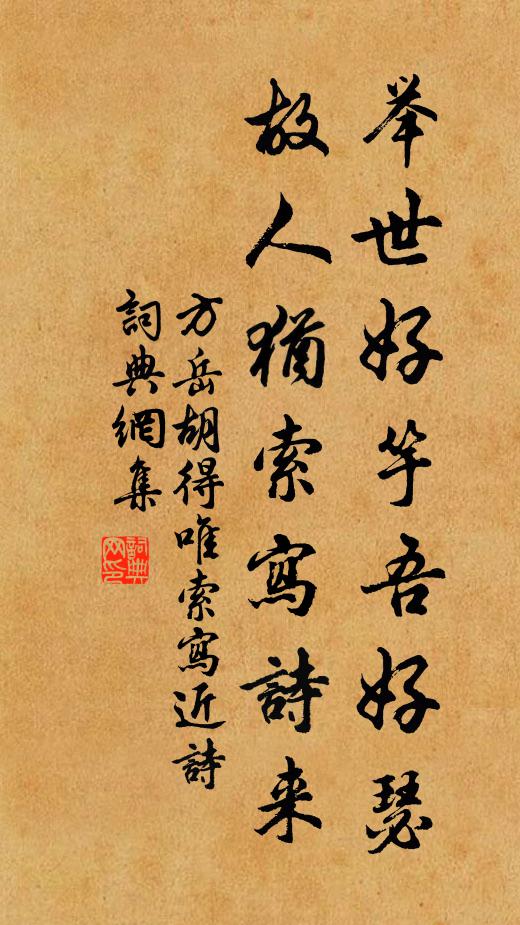 举世好竽吾好瑟
故人猶索寫詩来
方岳胡得唯索寫近詩
詞典網集
詞典网印